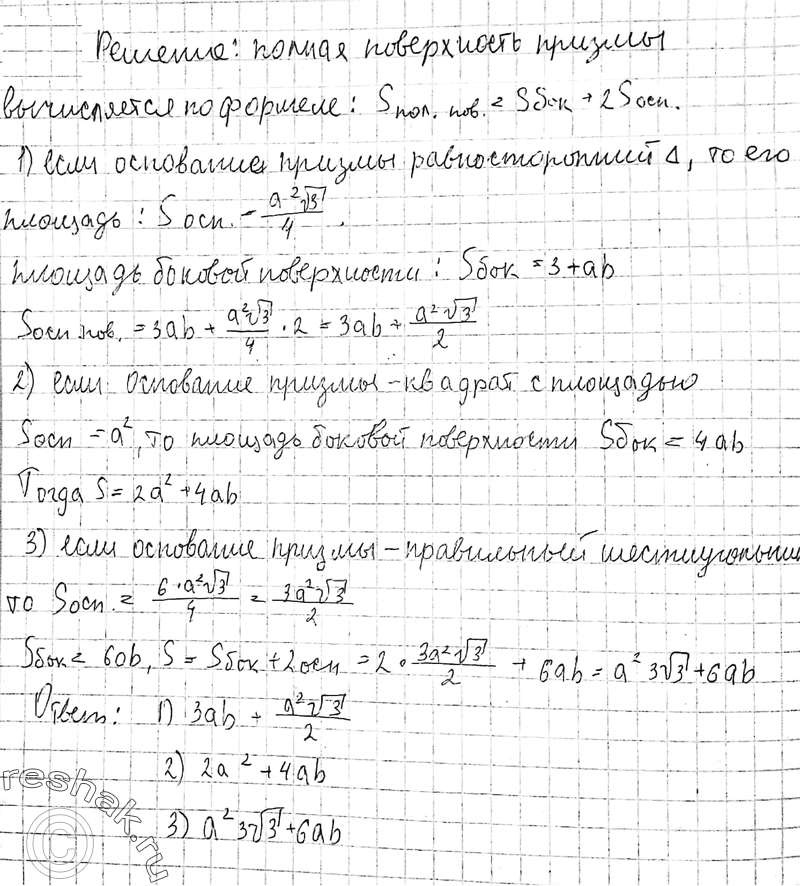 Решение: полная поверхность призмы
вычисляется по формеле: Sпол. пов. = Sбок + 2Sосн.
1) если основание призмы равносторонний Δ, то его
площадь: Sосн. = a²√3/4.
площадь боковой поверхности: Sбок = 3+ab
Sосн пов. = 3ab + a²√3/4 · 2 = 3ab + a²√3/2
2) если основание призмы – квадрат с площадью
Sосн = a², то площадь боковой поверхности Sбок = 4ab
Тогда S = 2a² + 4ab
3) если основание призмы – правильный шестиугольник
то Sосн. = 6·a²√3/4 = 3a²√3/2
Sбок = 6ab, S = Sбок + 2осн = 2 · 3a²√3/2 + 6ab = a² 3√3 + 6ab
Ответ: 1) 3ab + a²√3/2
2) 2a² + 4ab
3) a² 3√3 + 6ab
reshak.ru
©